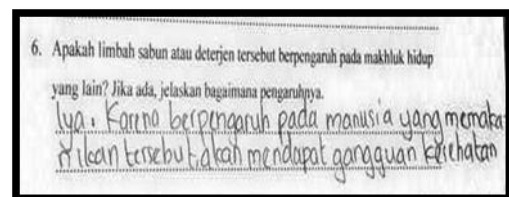 6. Apakah limbah sabun atau deterjen tersebut berpengaruh pada makhluk hidup
yang lain? Jika ada, jelaskan bagaimana pengaruhnya.
Iya. Karena berpengaruh pada manusia yang memaka
n ikan tersebut, akan mendapat gangguan kesehatan